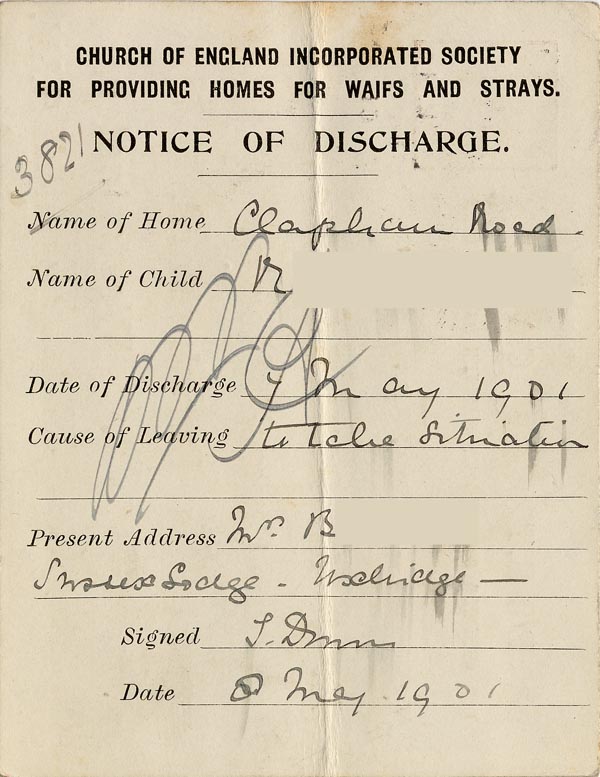 CHURCH OF ENGLAND INCORPORATED SOCIETY
FOR PROVIDING HOMES FOR WAIFS AND STRAYS.
NOTICE OF DISCHARGE.
3821
Name of Home Clapham Road.
Name of Child
Date of Discharge 7 May 1901
Cause of Leaving to take situation
Present Address Mrs. B
Sussex Lodge - Uxbridge —
Signed
Date 8 May. 1901